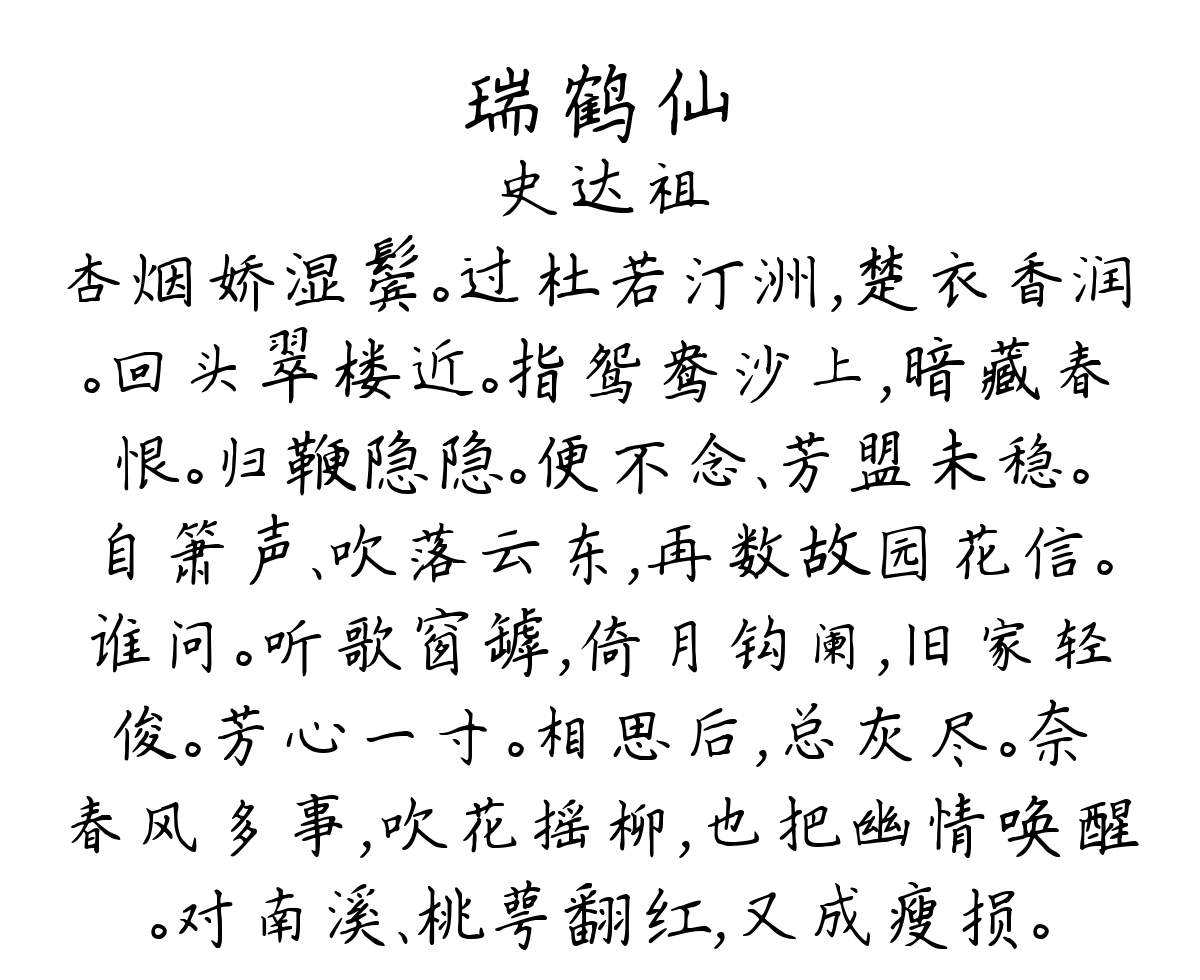 瑞鹤仙
史达祖
杏烟娇湿鬓。过杜若汀洲,楚衣香润
。回头翠楼近。指鸳鸯沙上,暗藏春
恨。归鞭隐隐。便不念、芳盟未稳。
自箫声、吹落云东,再数故园花信。
谁问。听歌窗罅,倚月钩阑,旧家轻
俊。芳心一寸。相思后,总灰尽。奈
春风多事,吹花摇柳,也把幽情唤醒
。对南溪、桃萼翻红,又成瘦损。